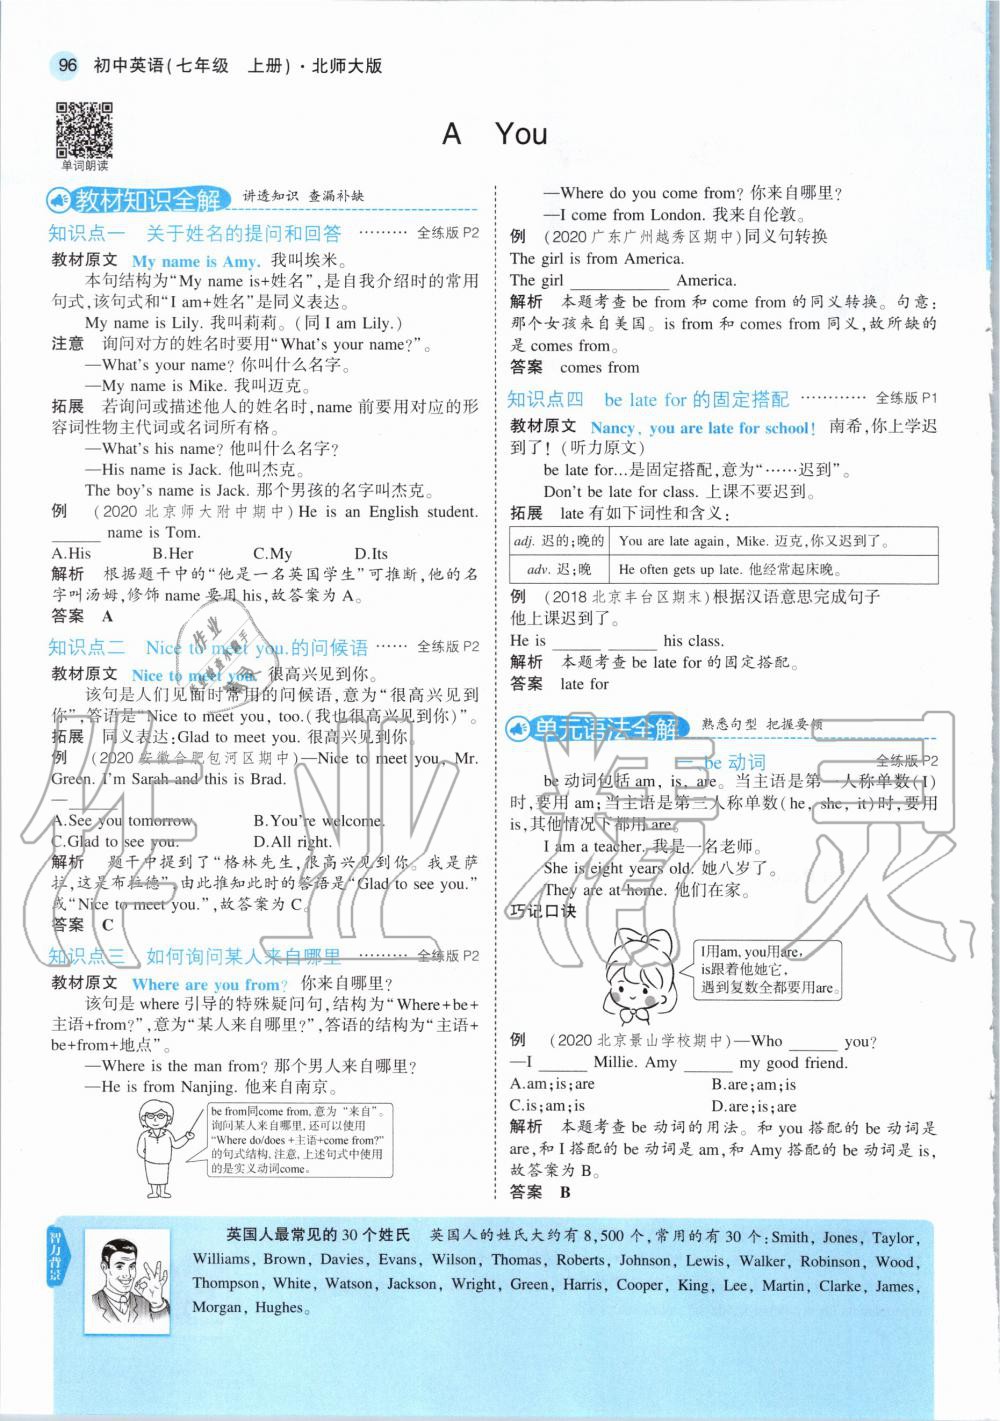 96 初中英语(七年级 上册)·北师大版
单词朗读
A You
教材知识全解 讲透知识 查漏补缺
知识点一 关于姓名的提问和回答 ……… 全练版 P2
教材原文 My name is Amy. 我叫埃米。
本句结构为“My name is+姓名”,是自我介绍时的常用
句式,该句式和“I am+姓名”是同义表达。
My name is Lily. 我叫莉莉。(同 I am Lily.)
注意 询问对方的姓名时要用“What's your name?”。
—What's your name? 你叫什么名字。
—My name is Mike. 我叫迈克。
拓展 若询问或描述他人的姓名时,name 前要用对应的形
容词性物主代词或名词所有格。
—What's his name? 他叫什么名字?
—His name is Jack. 他叫杰克。
The boy's name is Jack. 那个男孩的名字叫杰克。
例 (2020 北京师大附中期中)He is an English student.
______ name is Tom.
A.His B.Her C.My D.Its
解析 根据题干中的“他是一名英国学生”可推断,他的名
字叫汤姆,修饰 name 要用 his,故答案为 A。
答案 A
知识点二 Nice to meet you.的问候语 …… 全练版 P2
教材原文 Nice to meet you. 很高兴见到你。
该句是人们见面时常用的问候语,意为“很高兴见到
你”,答语是“Nice to meet you, too.(我也很高兴见到你)”。
拓展 同义表达:Glad to meet you. 很高兴见到你。
例 (2020 安徽合肥包河区期中)—Nice to meet you, Mr.
Green. I'm Sarah and this is Brad.
—______
A.See you tomorrow. B.You're welcome.
C.Glad to see you. D.All right.
解析 题干中提到了“格林先生,很高兴见到你。我是萨
拉,这是布拉德”,由此推知此时的答语是“Glad to see you.”
或“Nice to meet you.”,故答案为 C。
答案 C
知识点三 如何询问某人来自哪里 ……… 全练版 P2
教材原文 Where are you from? 你来自哪里?
该句是 where 引导的特殊疑问句,结构为“Where+be+
主语+from?”,意为“某人来自哪里?”,答语的结构为“主语+
be+from+地点”。
—Where is the man from? 那个男人来自哪里?
—He is from Nanjing. 他来自南京。
be from同come from,意为“来自”。
询问某人来自哪里,还可以使用
“Where do/does +主语+come from?”
的句式结构,注意,上述句式中使用
的是实义动词come。
—Where do you come from? 你来自哪里?
—I come from London. 我来自伦敦。
例 (2020 广东广州越秀区期中)同义句转换
The girl is from America.
The girl ______ ______ America.
解析 本题考查 be from 和 come from 的同义转换。句意:
那个女孩来自美国。is from 和 comes from 同义,故所缺的
是 comes from。
答案 comes from
知识点四 be late for 的固定搭配 ………… 全练版 P1
教材原文 Nancy, you are late for school! 南希,你上学迟
到了!(听力原文)
be late for...是固定搭配,意为“……迟到”。
Don't be late for class. 上课不要迟到。
拓展 late 有如下词性和含义:
adj. 迟的;晚的 You are late again, Mike. 迈克,你又迟到了。
adv. 迟;晚 He often gets up late. 他经常起床晚。
例 (2018 北京丰台区期末)根据汉语意思完成句子
他上课迟到了。
He is ______ ______ his class.
解析 本题考查 be late for 的固定搭配。
答案 late for
单元语法全解 熟悉句型 把握要领
一 be 动词 全练版 P2
be 动词包括 am, is, are。当主语是第一人称单数(I)
时,要用 am;当主语是第三人称单数(he, she, it)时,要用
is,其他情况下都用 are。
I am a teacher. 我是一名老师。
She is eight years old. 她八岁了。
They are at home. 他们在家。
巧记口诀
I用am, you用are,
is跟着他她它,
遇到复数全都要用are。
例 (2020 北京景山学校期中)—Who ______ you?
—I ______ Millie. Amy ______ my good friend.
A.am;is;are B.are;am;is
C.is;am;are D.are;is;am
解析 本题考查 be 动词的用法。和 you 搭配的 be 动词是
are,和 I 搭配的 be 动词是 am,和 Amy 搭配的 be 动词是 is,
故答案为 B。
答案 B
智力背景
英国人最常见的 30 个姓氏 英国人的姓氏大约有 8,500 个,常用的有 30 个:Smith, Jones, Taylor,
Williams, Brown, Davies, Evans, Wilson, Thomas, Roberts, Johnson, Lewis, Walker, Robinson, Wood,
Thompson, White, Watson, Jackson, Wright, Green, Harris, Cooper, King, Lee, Martin, Clarke, James,
Morgan, Hughes。
作业精灵